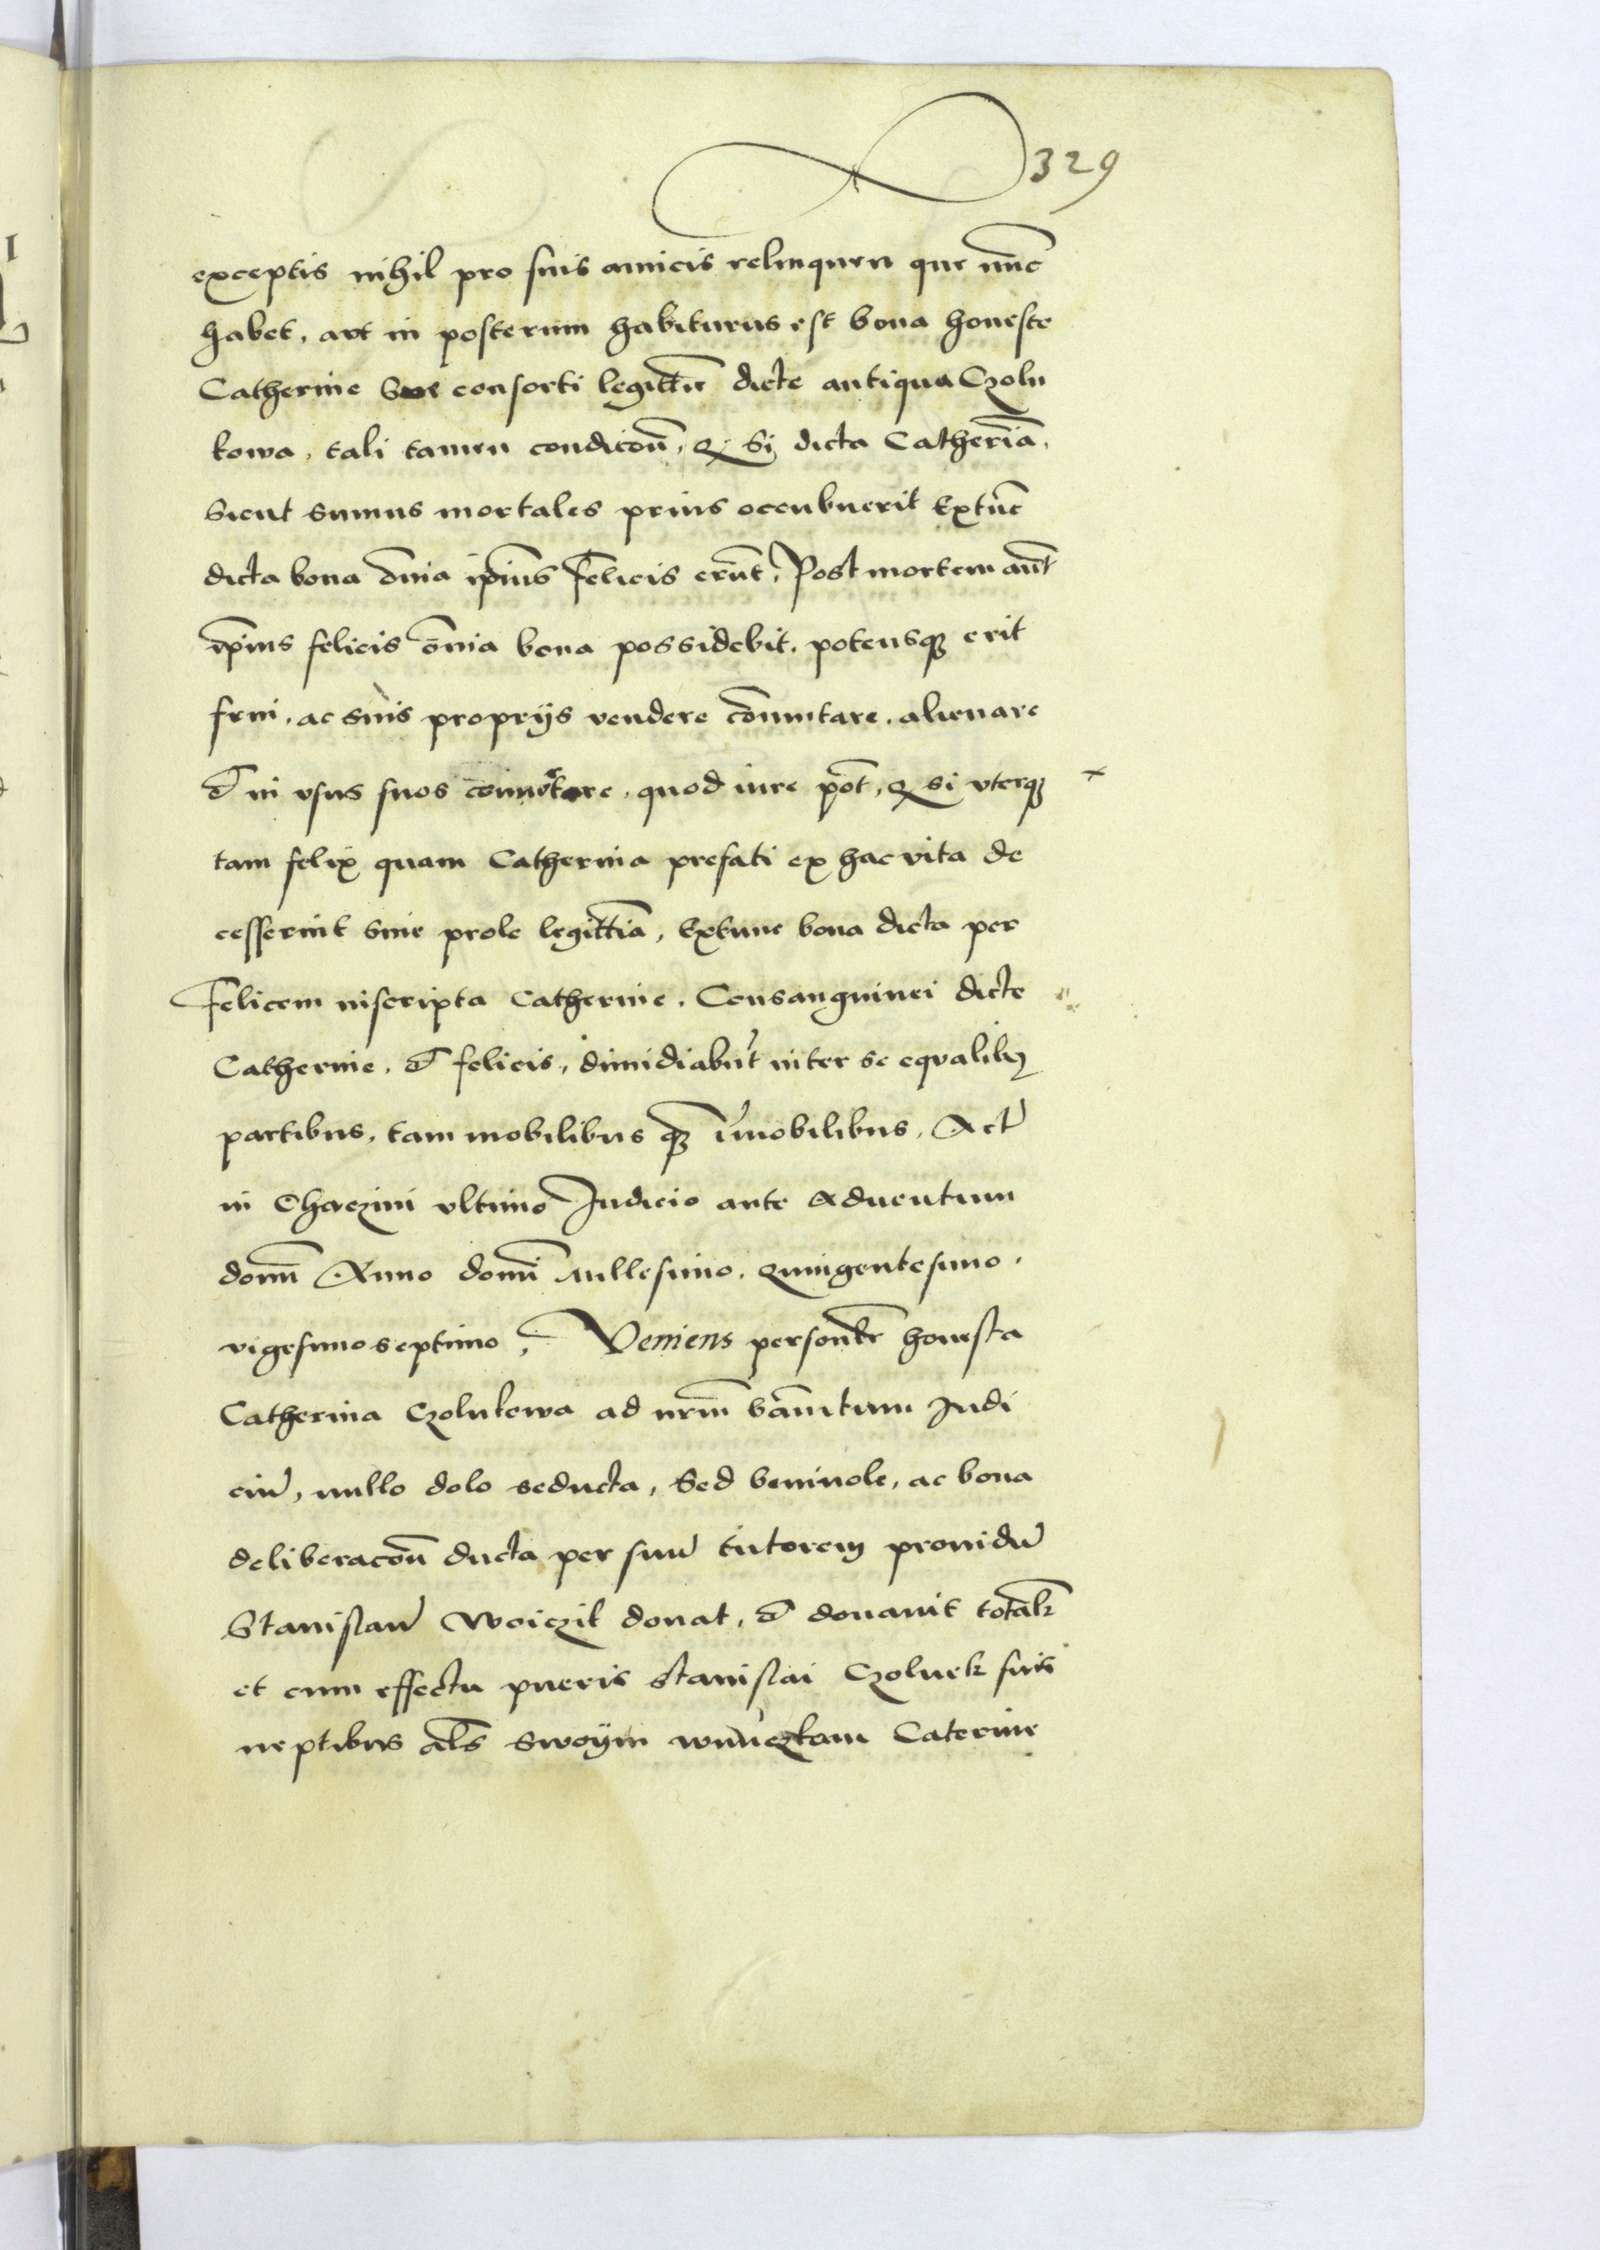 329
exceptis nihil pro suis amicis relinquen que nūc
habet, aut in posterum habiturus est bona honeste
Catherine Sue consorti legittīe dicte antiqua Czolu
kowa, tali tamen condicōn, Q Si dicta Catherīa,
Sicut sumus mortales prius occubuerit Extūc
dicta bona om̄ia ip̄ius Felicis erūt, Post mortem aūt
ip̄ius felicis om̄ia bona possidebit, potensq₃ erit
frui, ac suis proprijs vendere com̄utare, alienare
Et in vsus suos conuertere, quod iure pōt, Q si vterq₃
tam felix quam Catherina prefati ex hac vita de
cesserint Sine prole legittīa, Extunc bona dicta per
Felicem inscripta Catherine, Consanguinei dicte
Catherine, Et felicis, dimidiabūt inter se equalib₉
partibus, tam mobilibus q₃ im̄obilibus, Actū
in Chaczini vltimo Judicio ante Aduentum
domī Anno domī Millesimo, Quingentesimo,
vigesimoseptimo, Veniens personlr̄ honesta
Catherina Czolukowa ad nrm̄ bānitum Judi
ciū, nullo dolo seducta, Sed beniuole, ac bona
deliberacōn ducta per suū tutorem prouidū
Stanislaū Woiczik donat, Et donauit totalr̄
et cum effectu pueris Stanislai Czoluek suis
neptibus als̄ swoÿm wnuczkam Caterine